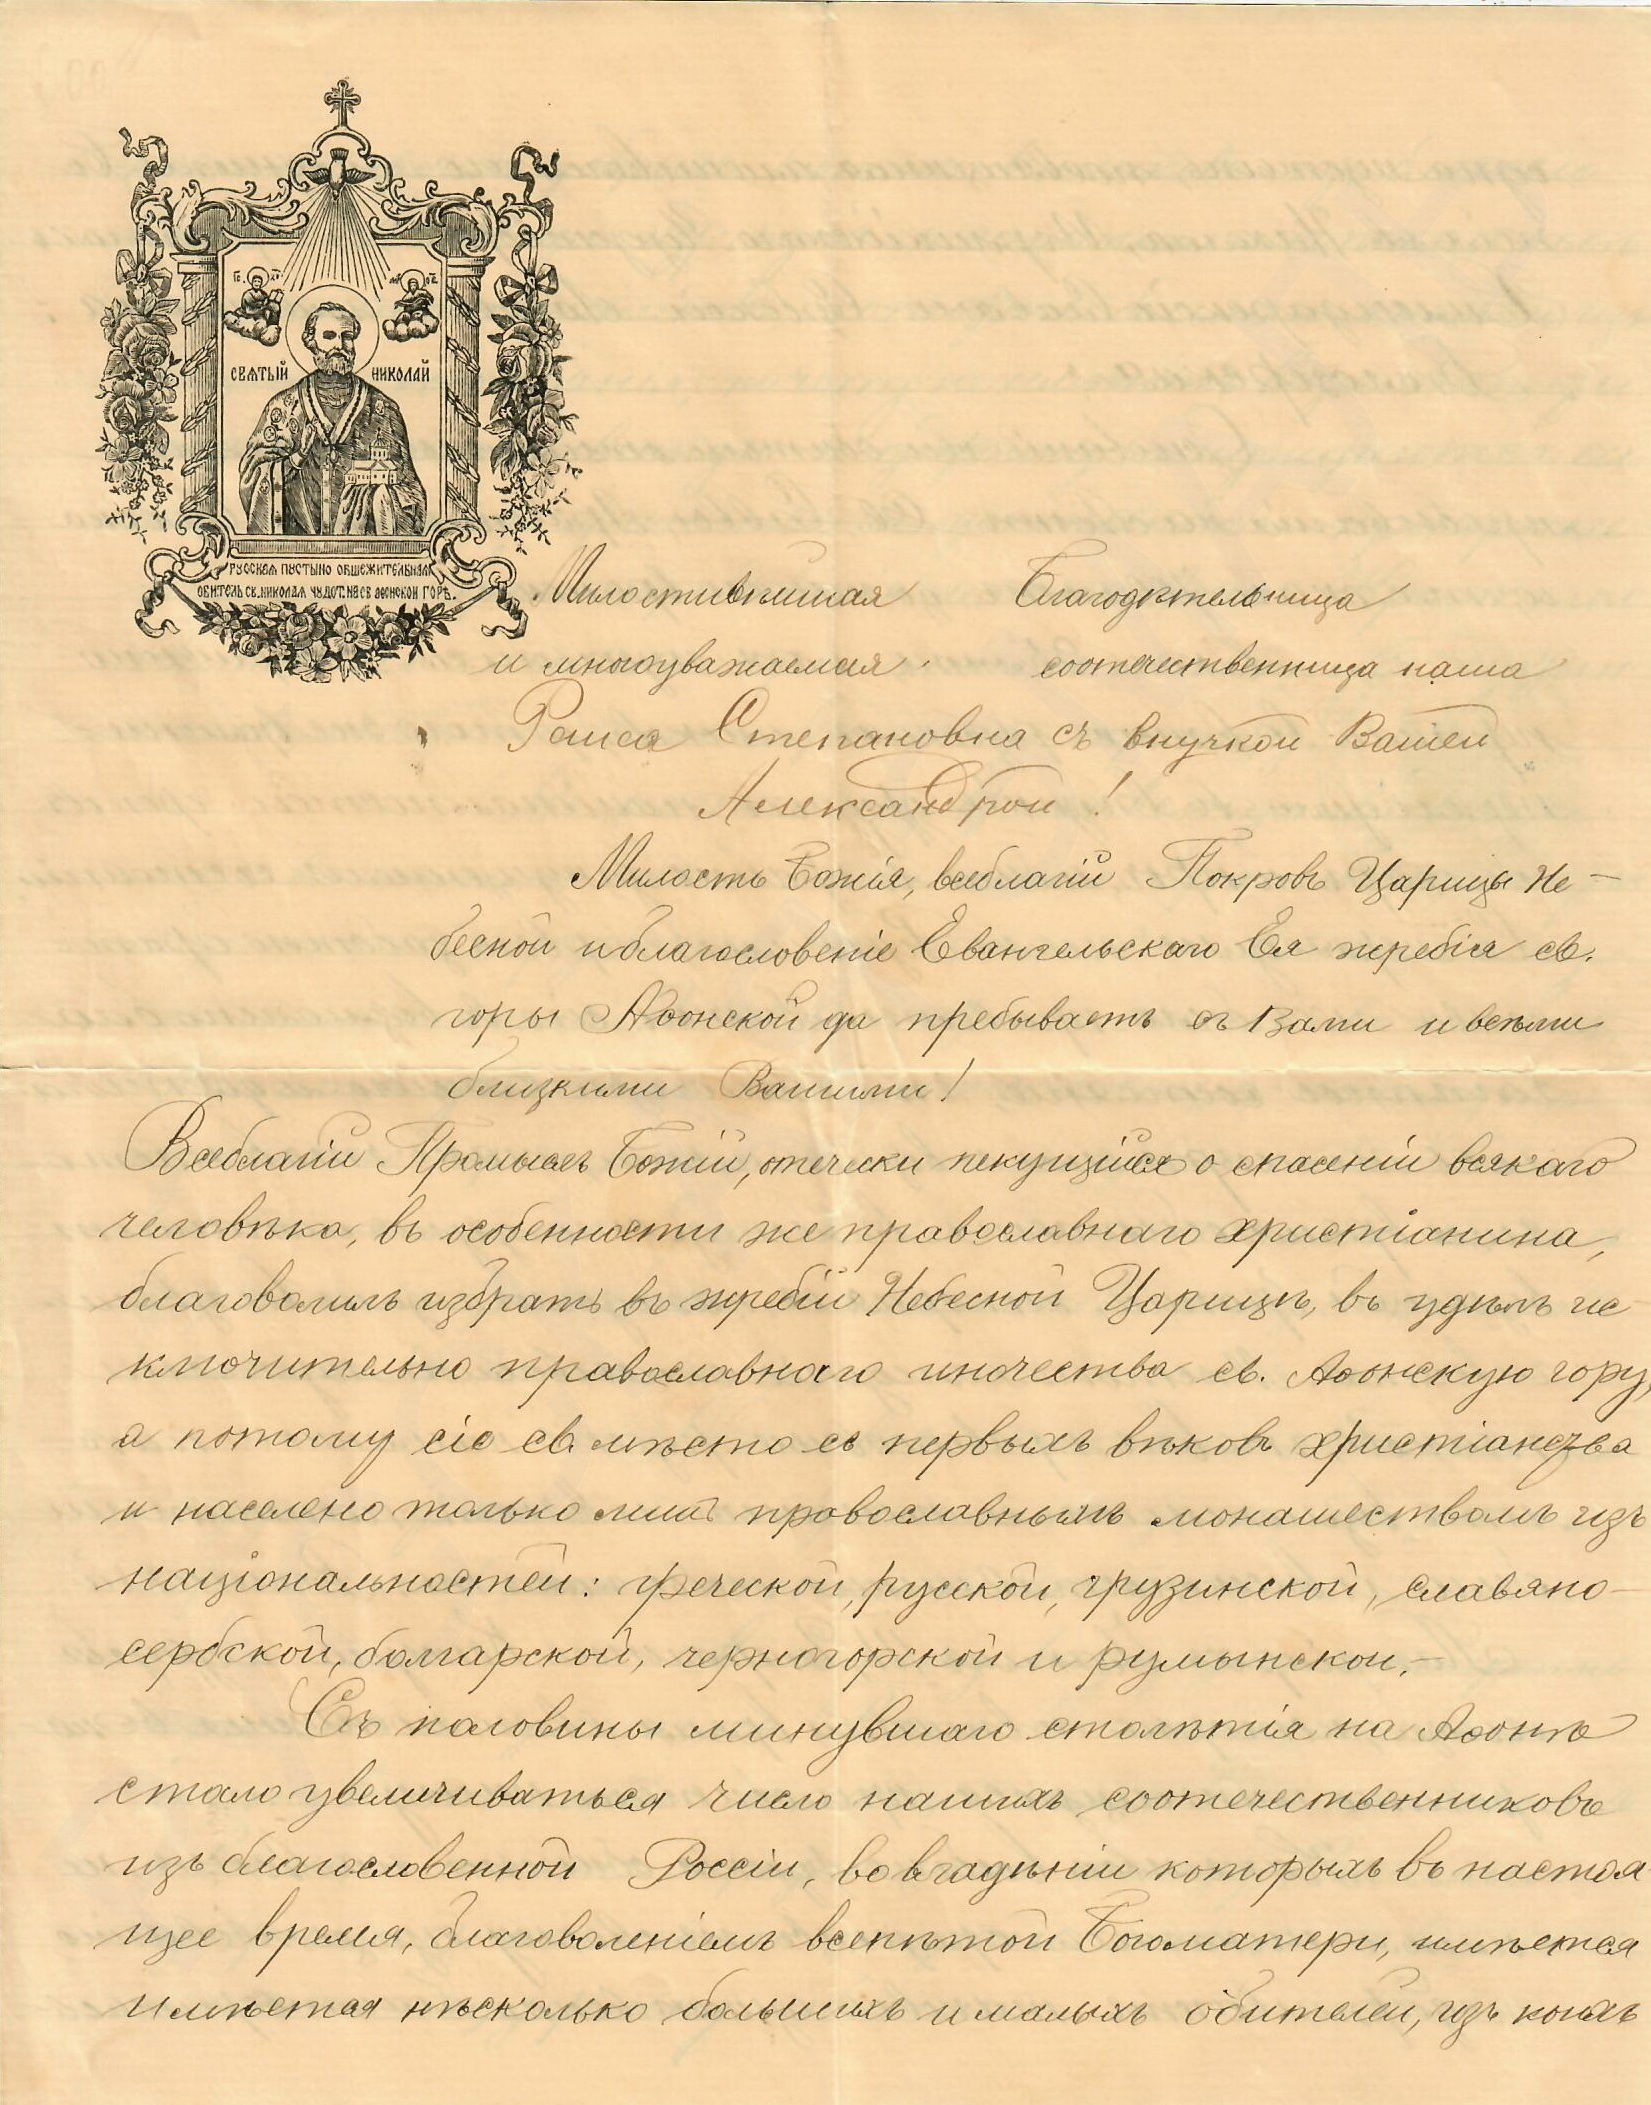 СВЯТЫЙ НИКОЛАЙ
РУССКАЯ ПУСТЫНО ОБЩЕЖИТЕЛЬНАЯ
ОБИТЕЛЬ СВ. НИКОЛАЯ ЧУДОТ. НА СВ АѲОНСКОЙ ГОРѢ.
Милостивѣйшая Благодѣтельница
и многоуважаемая соотечественница наша
Раиса Степановна съ внучкой Вашей
Александрой!
Милость Божія, всеблагій Покровъ Царицы Не-
бесной и благословеніе Евангельскаго Ея жребія св.
горы Аѳонской да пребываетъ съ Вами и всѣми
близкими Вашими!
Всеблагій Промыслъ Божій, отечески пекущійся о спасеніи всякаго
человѣка, въ особенности же православнаго христіанина,
благоволилъ избрать въ жребій Небесной Царицѣ, въ удѣлъ ис
ключительно православнаго иночества св. Аѳонскую гору,
а потому сіе св. мѣсто съ первыхъ вѣковъ христіанства
и населено только православнымъ монашествомъ изъ
національностей: греческой, русской, грузинской, славяно-
сербской, болгарской, черногорской и румынской.-
Съ половины минувшаго столѣтія на Аѳонѣ
стало увеличиваться число нашихъ соотечественниковъ
изъ благословенной Россіи, во владѣніи которыхъ въ настоя
щее время, благоволеніемъ всепѣтой Богоматери, имѣется
имѣется нѣсколько большихъ и малыхъ обителей, изъ коихъ